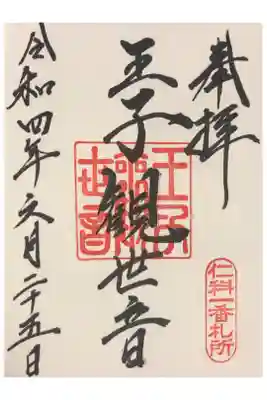 奉拝
王子観世音
王子
観
世音
令和四年六月二十五日
仁科一番札所